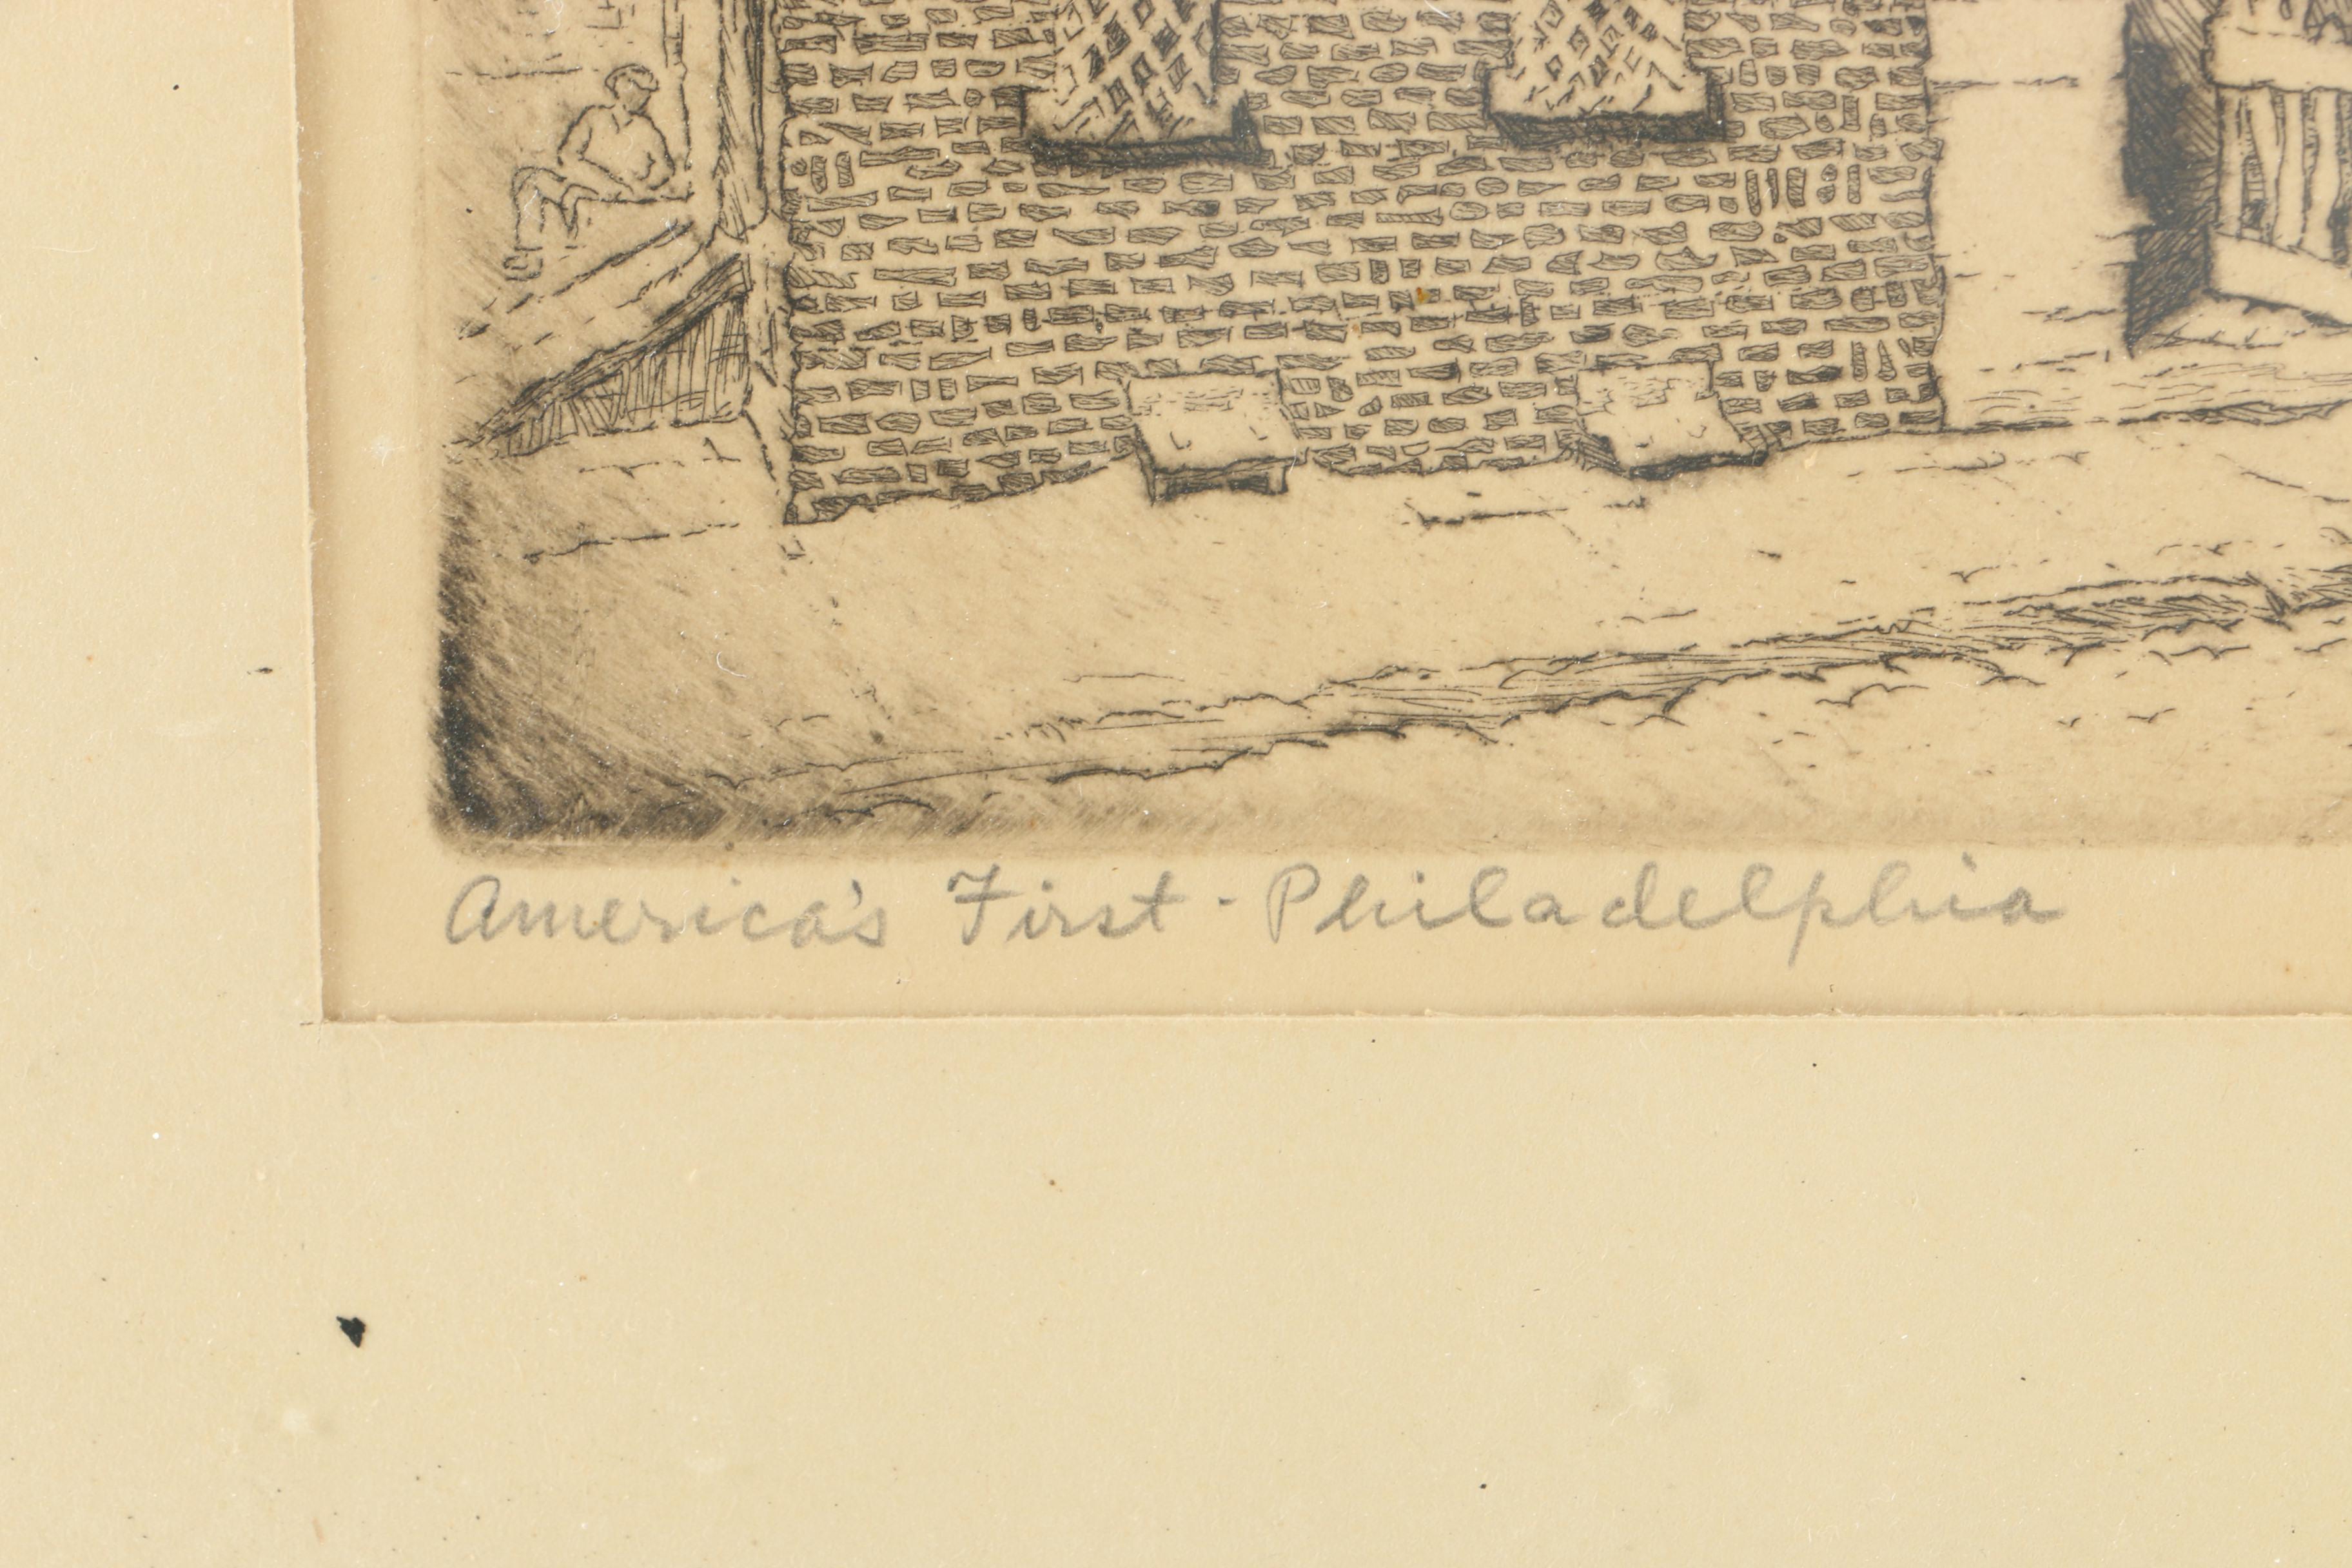 America's First - Philadelphia